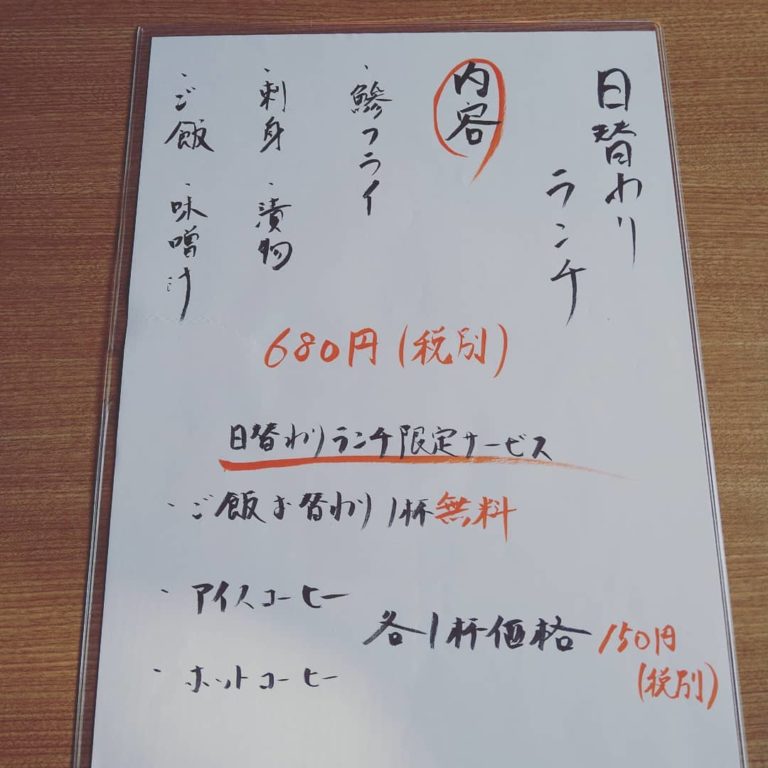 日替わり
ランチ
内容
・鯵フライ
・刺身・漬物
・ご飯・味噌汁
680円(税別)
日替わりランチ限定サービス
・ご飯お替わり1杯無料
・アイスコーヒー
・ホットコーヒー
各1杯価格150円
(税別)